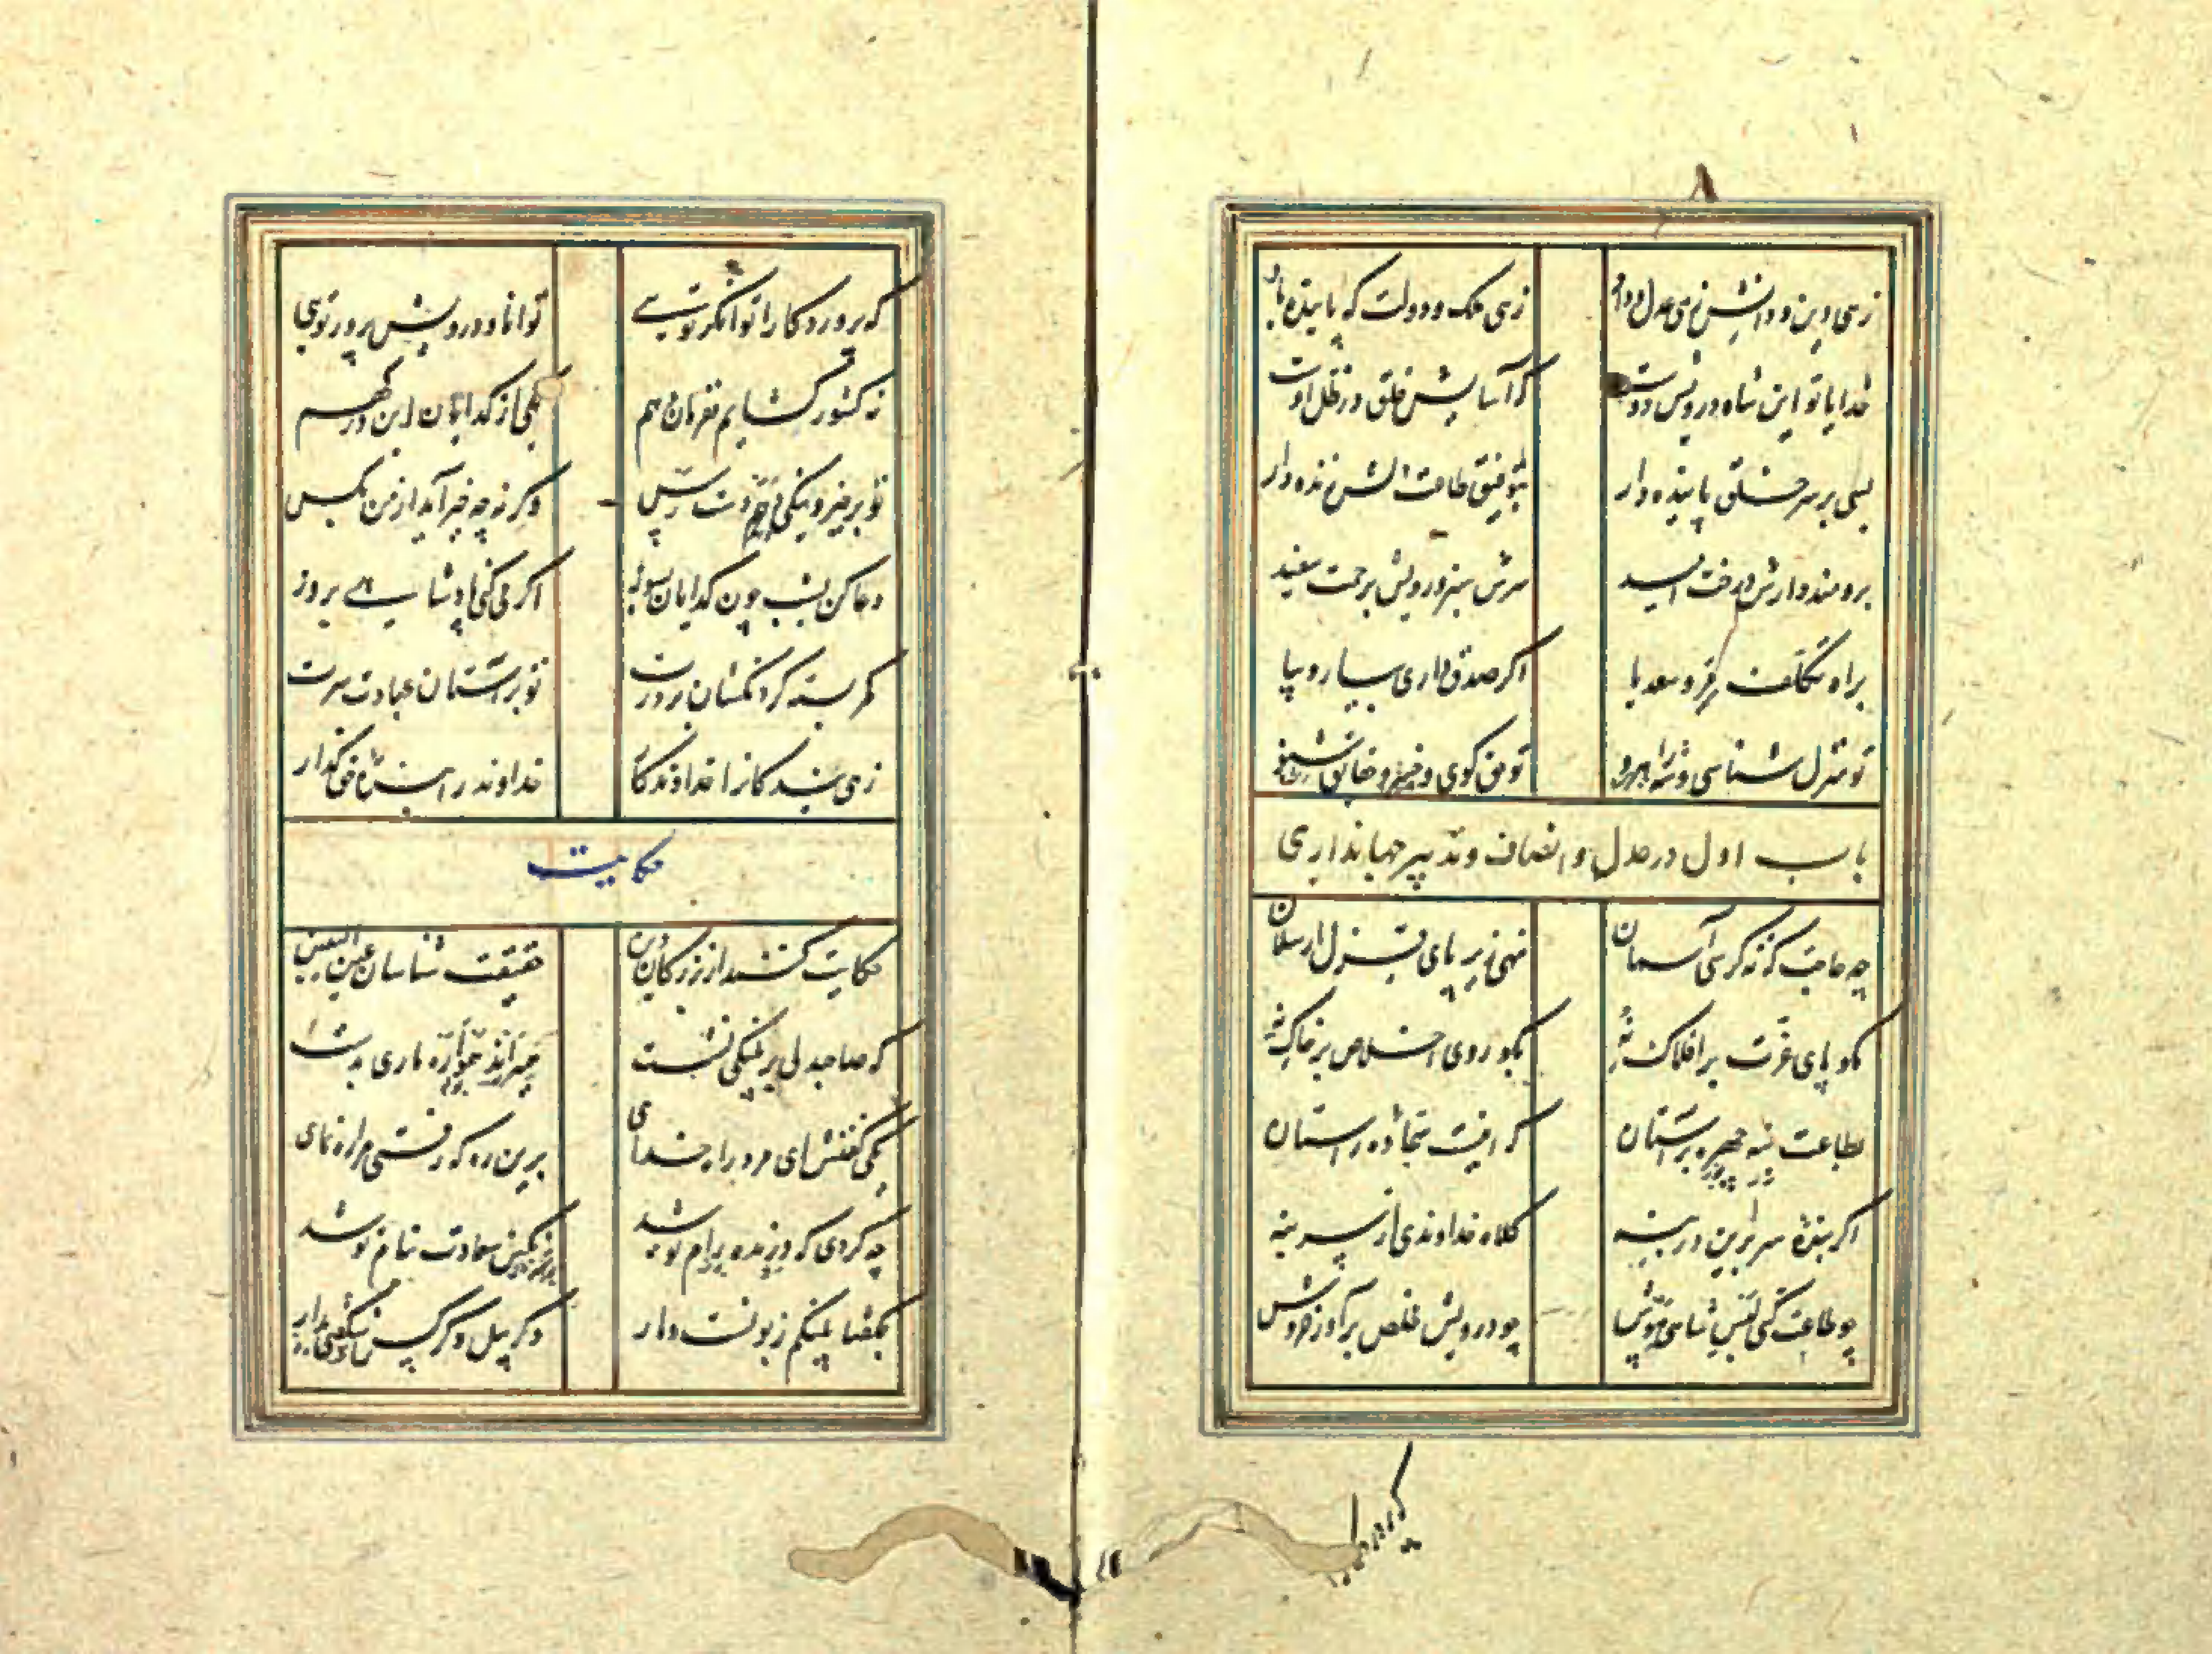 ۸
زهی دین و دانش زهی عدل و داد زهی ملک و دولت که پاینده باد
خدایا تو این شاه درویش دوست که آسایش خلق در ظل اوست
بسی بر سر خلق پاینده دار بتوفیق طاعت دلش زنده دار
برومند دارش درخت امید سرش سبز و رویش برحمت سفید
براه تکلف مرو سعدیا اگر صدق داری بیار و بیا
تو منزل شناسی و شه راهرو تو حق گوی و خسرو حقایق شنو
باب اول در عدل و انصاف و تدبیر جهانداری
چه حاجت که نه کرسی آسمان نهی زیر پای قزل ارسلان
مگو پای عزت بر افلاک نه بگو روی اخلاص بر خاک نه
بطاعت بنه چهره بر آستان که اینست سجاده راستان
اگر بنده سر برین در بنه کلاه خداوندی از سر بنه
چو طاعت کنی لبس شاهی مپوش چو درویش مخلص برآور خروش
که پروردگارا توانگر تویی توانا و درویش پرور تویی
نه کشور گشایم نه فرمان دهم یکی از گدایان این درگهم
تو بر خیر و نیکی دهم دست رس وگرنه چه خیر آید از من بکس
دعا کن بشب چون گدایان بسوز اگر می کنی پادشایی بروز
کمر بسته گردنکشان بر درت تو بر آستان عبادت سرت
زهی بندگانرا خداوندگار خداوند را بنده حق گذار
حکایت
حکایت کنند از بزرگان دین حقیقت شناسان عین الیقین
که صاحبدلی بر پلنگی نشست همی راند هموار و ماری بدست
یکی گفتش ای مرد راه خدای برین ره که رفتی مرا ره نمای
چه کردی که درنده رام تو شد نگین سعادت بنام تو شد
بگفتا پلنگم زبونست و مار وگر پیل و کرکس شگفتی مدار